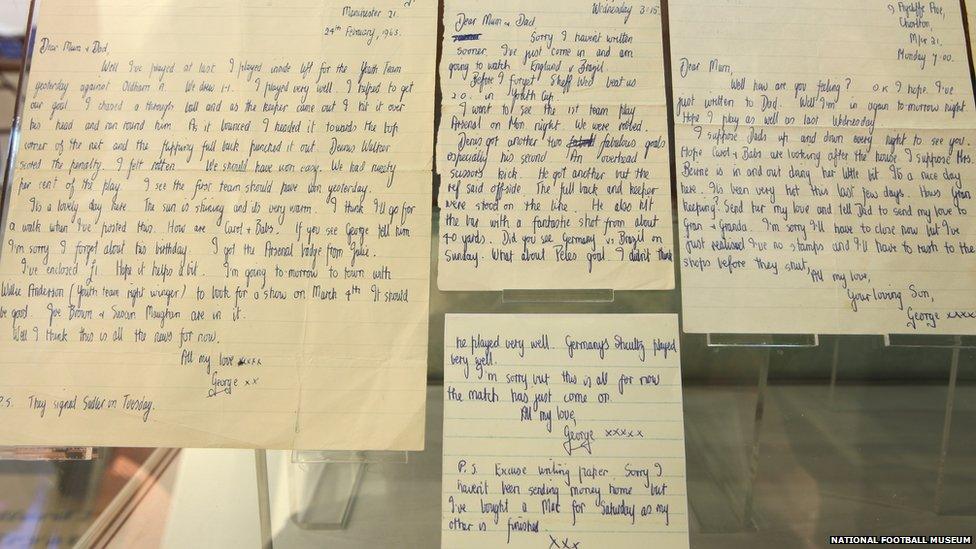 Manchester 21.
24th February, 1963.
Dear Mum & Dad,
Well I've played at last I played inside left for the Youth Team
yesterday against Oldham A. We drew 1-1. I played very well. I helped to get
our goal. I chased a through ball and as the keeper came out I hit it over
his head and ran round him. As it bounced I headed it towards the top
corner of the net and the flipping full back punched it out. Dennis Walker
scored the penalty. I felt rotten. We should have won easy. We had ninety
per cent of the play. I see the first team should have won yesterday.
It's a lovely day here. The sun is shining and its very warm. I think I'll go for
a walk when I've posted this. How are Carol & Babs? If you see George tell him
I'm sorry I forgot about his birthday. I got the Arsenal badge from
I've enclosed £1. Hope it helps a bit. I'm going to-morrow to town with
Willie Anderson (Youth team right winger) to look for a show on March 4th It should
be good. Joe Brown & Susan Maughan are in it.
Well I think this is all the news for now.
All my love xxxx
George xx
P.S. They signed Sadler on Tuesday.
Wednesday 3.15
Dear Mum & Dad,
Sorry I haven't written
sooner. I've just come in and am
going to watch England v Brazil.
Before I forget Sheff Wed beat us
2.0. in Youth Cup.
I went to see the 1st team play
Arsenal on Mon night. We were robbed.
Denis got another two fabulous goals
especially his second An overhead
scissors kick. He got another but the
ref said offside. The full back and keeper
were stood on the line. He also hit
the bar with a fantastic shot from about
40 yards. Did you see Germany vs Brazil on
Sunday. What about Peles goal. I didn't think
he played very well. Germany's Shcultz played
very well.
I'm sorry but this is all for now
the match has just come on.
All my love,
George xxxxx
P.S. Excuse writing paper. Sorry I
haven't been sending money home but
I've bought a Mac for Saturday as my
other is finished.
xxx
9 Aycliffe Ave,
Chorlton,
M/cr 21.
Monday 7.00.
Dear Mum,
Well how are you feeling? OK I hope. I've
just written to Dad. Well I'm in again to-morrow night
Hope I play as well as last Wednesday.
I suppose Dads up and down every night to see you.
Hope Carol & Babs are looking after the house I suppose Mrs
is in and out doing her little bit Its a nice day
here. Its been very hot this last few days. Hows Gran
keeping? Send her my love and tell Dad to send my love to
Gran & Granda. I'm sorry I'll have to close now but I've
just realised I've no stamps and I'll have to rush to the
shops before they shut,
All my love,
Your loving Son,
George xxxx
NATIONAL FOOTBALL MUSEUM